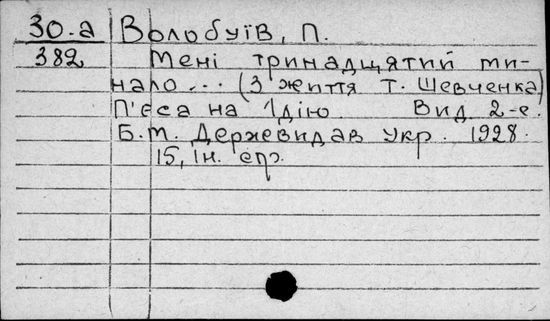 30.а Волобуїв, П.
382 Мені тринадцятий ми-
нало... (З життя Т. Шевченка)
П'єса на 1 дію. Вид. 2-е.
Б.м. Державидав Укр. 1928.
15, Ін. стр.